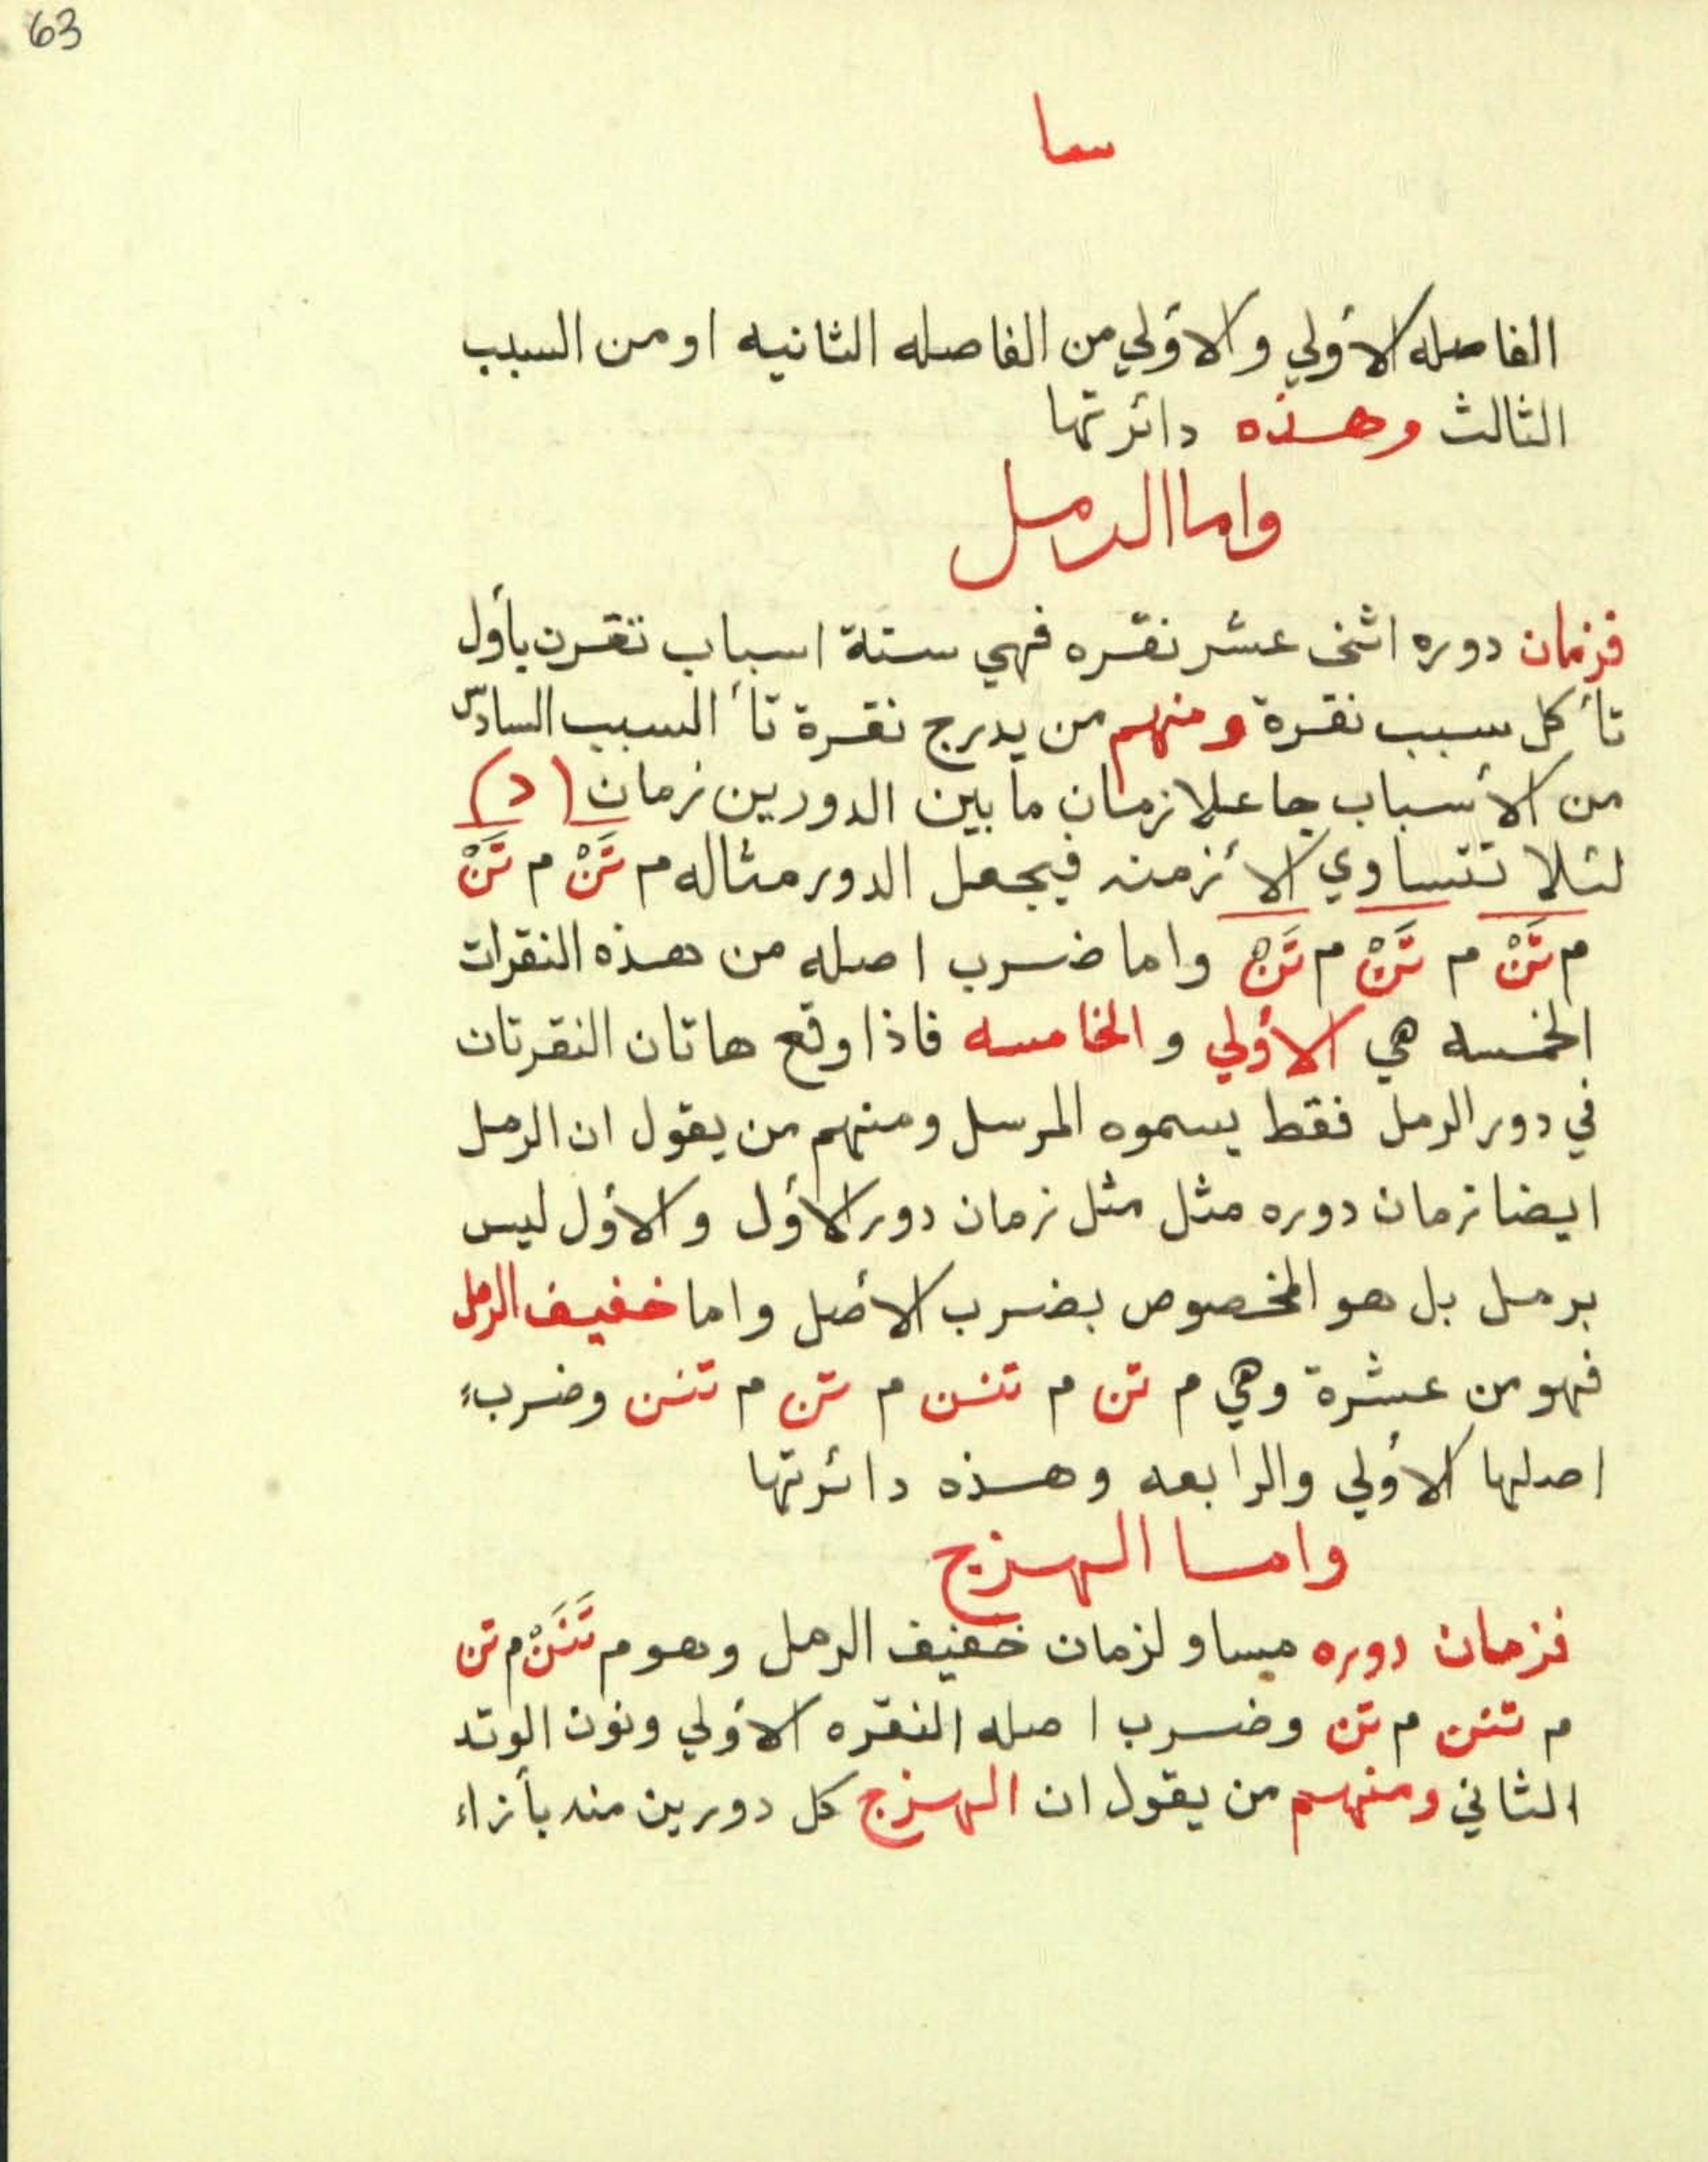 63
سا
الفاصله الأولي والأولي من الفاصله الثانيه او من السبب
الثالث وهذه دائرتها
واما الرمل
فزمان دوره اثنى عشر نقره فهي ستة اسباب تقرن بأول
تأ كل سبب نقرة ومنهم من يدرج نقرة تأ السبب السادس
من الأسباب جاعلا زمان ما بين الدورين زمان (د)
لئلا تتساوي الأزمنه فيجعل الدور مثاله م تَنْ م تَنْ
م تَنْ م تَنْ م تَنْ واما ضرب اصله من هذه النقرات
الخمسه هي الأولي والخامسه فاذا وقع هاتان النقرتان
في دور الرمل فقط يسموه المرسل ومنهم من يقول ان الرمل
ايضا زمان دوره مثل مثل زمان دور الأول والأول ليس
برمل بل هو المخصوص بضرب الأصل واما خفيف الرمل
فهو من عشرة وهي م تن م تنن م تن م تنن وضرب
اصلها الأولي والرابعه وهذه دائرتها
واما الهزج
فزمان دوره مساو لزمان خفيف الرمل وهو م تَنَنْ م تن
م تنن م تن وضرب اصله النقره الأولي ونون الوتد
الثاني ومنهم من يقول ان الهزج كل دورين منه بأزاء